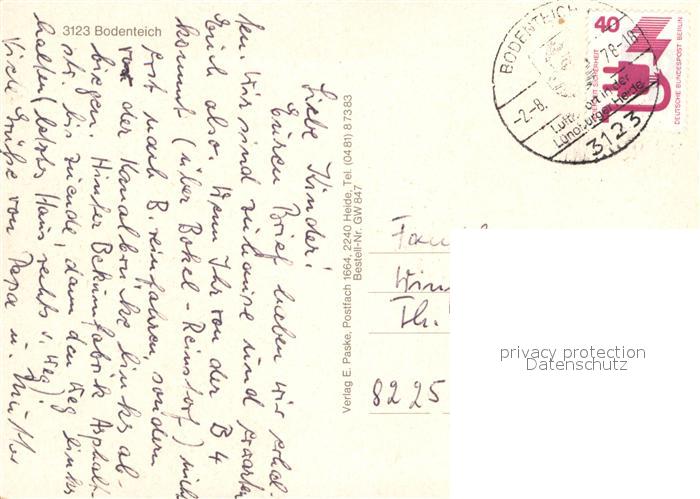 3123 Bodenteich
Liebe Kinder!
Euren Brief haben wir erhal-
ten. Wir sind zuhause und erwarten
Euch also. Wenn Ihr von der B 4
kommt (über Bokel - Reinstorf) nicht
erst nach B. reinfahren, sondern
vor der Kanalbrücke links ab-
biegen. Hinter Betonfabrik Asphalt-
str. bis zuende, dann den Weg links
halten (letztes Haus rechts v. Weg)
Viele Grüße von Papa u. Mutter
Verlag E. Paske, Postfach 1664, 2240 Heide, Tel. (0481) 87383
Bestell-Nr. GW 847
BODENTEICH
-2.-8. 78-18
Luftkurort in der
Lüneburger Heide
3123
40
SICHERHEIT
DEUTSCHE BUNDESPOST BERLIN
Fam
Win
Th.
8225
privacy protection
Datenschutz